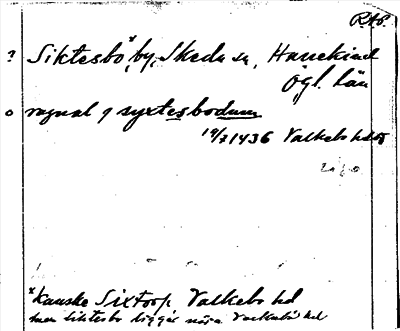 R.A.P.
? Siktesbo,ˣ by, Skeda sn, Hanekind
Ögl. län
o ragnal j syxtesbodum
19/7 1436 Valkebo hd
x Kanske Sixtorp Valkebo hd
men Siktesbo ligger nära Valkebo hd